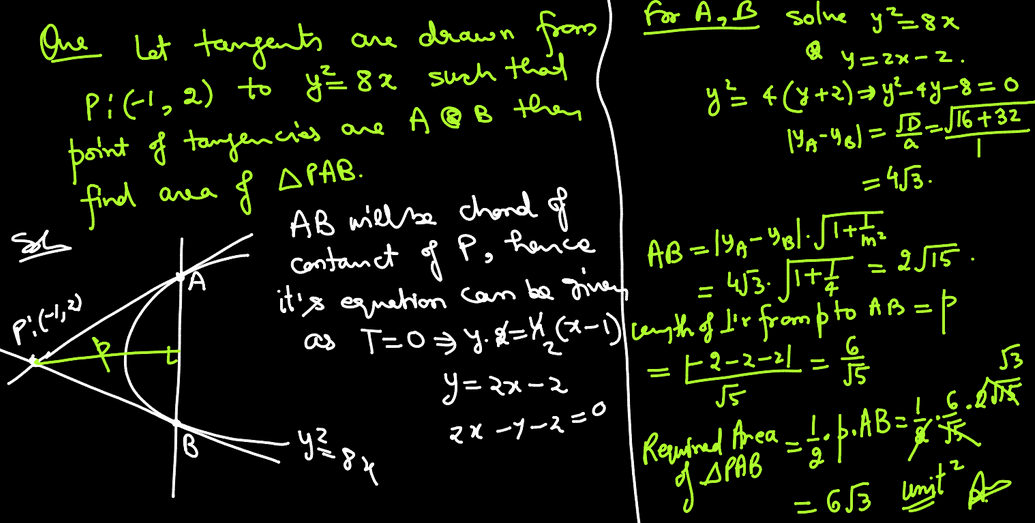 Que Let tangents are drawn from
P:(-1, 2) to y²=8x such that
point of tangencies are A & B then
find area of △PAB.
Sol
AB will be chord of
contanct of P, hence
it's equation can be given
as T=0 ⇒ y.2=4(x-1)
2
y=2x-2
2x-y-2=0
A
P:(-1,2)
p
B
y²=8x
For A, B solve y²=8x
& y=2x-2.
y²=4(y+2)⇒y²-4y-8=0
|yA-yB|=√D/a=√16+32/1
=4√3.
AB=|yA-yB|.√1+1/m²
=4√3.√1+1/4=2√15.
Length of ⊥'r from p to AB=p
=|-2-2-2|/√5=6/√5
√3
Required Area =1/2.p.AB=1/2.6/√5.2√15
of △PAB
=6√3 unit² A